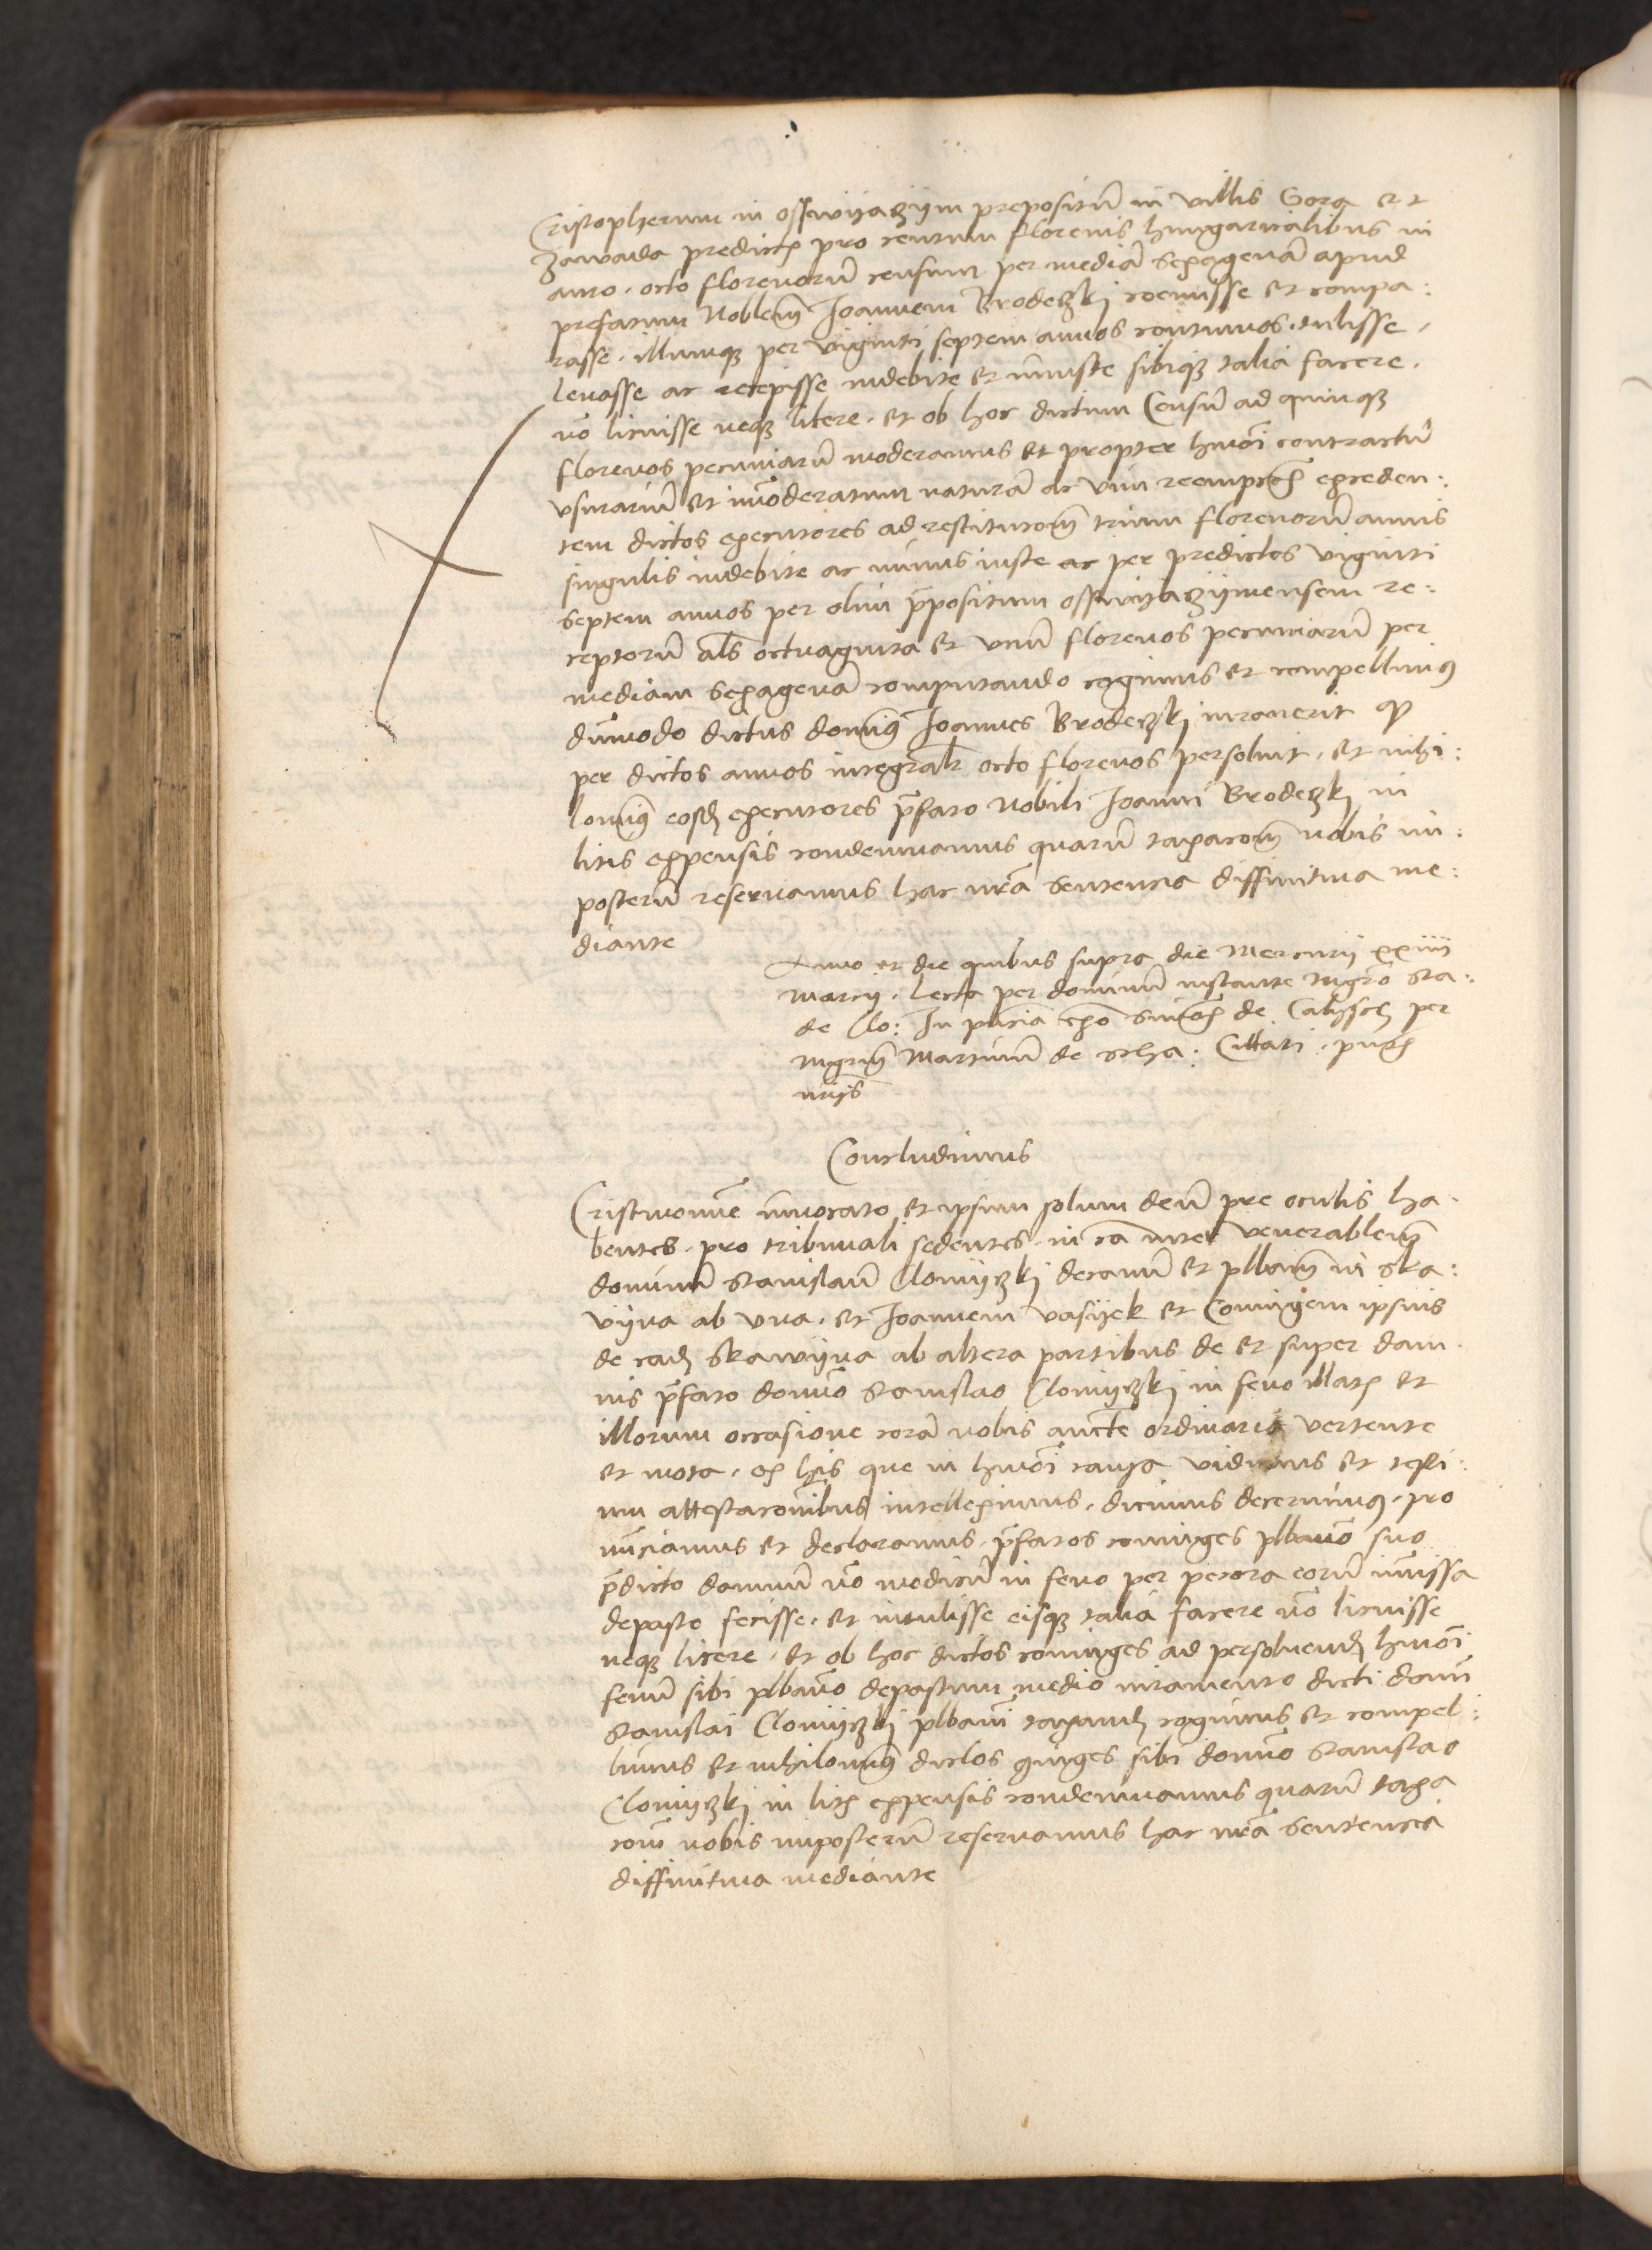 Cristopherum in osswyaczym prepositū in villis Gora et
Zawada predictis pro centum florenis hungaricalibus in
auro. octo florenorū censum per mediā sexagenā apud
prefatum Nobilem Joannem Brodeczkj coemisse et compa:
rasse. illumqʒ per viginti septem annos continuos. tulisse.
levasse ac recepisse indebite et iniuste sibiqʒ talia facere.
nō licuisse neqʒ licere. et ob hoc dictum Censū ad quinqʒ
florenos pecuniarū moderamus et propter hmōi contractū
vsurariū et imoderatum naturā ac vim reempcōis exceden:
tem dictos executores ad restitucōnē trium florenorū annis
singulis indebite ac minus iuste ac per predictos viginti
septem annos per olim p̄positum osswyaczymensem re:
ceptorū als octuaginta et vnū florenos pecuniarū per
mediam sexagenā computando cogimus et compellimus
dūmodo dictus dominus Joannes Brodeczkj iuraverit qp
per dictos annos integralr octo florenos persoluit. et nihi:
lominus eosdē executores p̄fato Nobili Joanni Brodeczkj in
litis expensis condemnamus quarū taxacōnē nobis im:
posterū reservamus hac nr̄a sentencia diffinitiva me:
diante
Anno et die quibus supra die Mercurij xxiiii
Marcij. lecta per dominū instante Mgrō Sta:
de Clo: In pn̄cia Simōis de Calissch per
mgrm̄ Martinū de Cittati. pn̄tibus
nr̄ijs
Concludimus
Cristi nomine inuocato et ipsum solum deū pre oculis ha.
bentes. pro tribunali sedentes. in cā inter venerabilem
dominū Stanislaū Clomyczkj decanū et plbanū in Ska:
vyna ab vna. et Joannem vasyek et Coniugem ipsius
de eadē Skawyna ab altera partibus de et super dam.
nis p̄fato domō Stanislao Clomyczkj in feno illatis et
illorum occasione corā nobis aucte ordinaria vertente
et mota. ex his que in hmōi causa vidimus et testi:
um attestacōnibus intelleximus. dicimus decernimus. pro
nūciamus et declaramus. p̄fatos coniuges plbano suo
p̄dicto damnū nō modicū in feno per pecora eorū inmissa
depasto fecisse. et intulisse eisqʒ talia facere nō licuisse
neqʒ licere. et ob hoc dictos coniuges ad persoluendū hmōi
fenū sibi plbano depastum medio iuramento dicti domi
Stanislai Clomyczkj plbani taxandū cogimus et compel:
limus et nihilominus dictos 9iuges sibi domno Stanislao
Clomyczkj in litis expensis condemnamus quarū taxa
cōnē nobis imposterū reservamus hac nr̄a sentencia
diffinitiva mediante